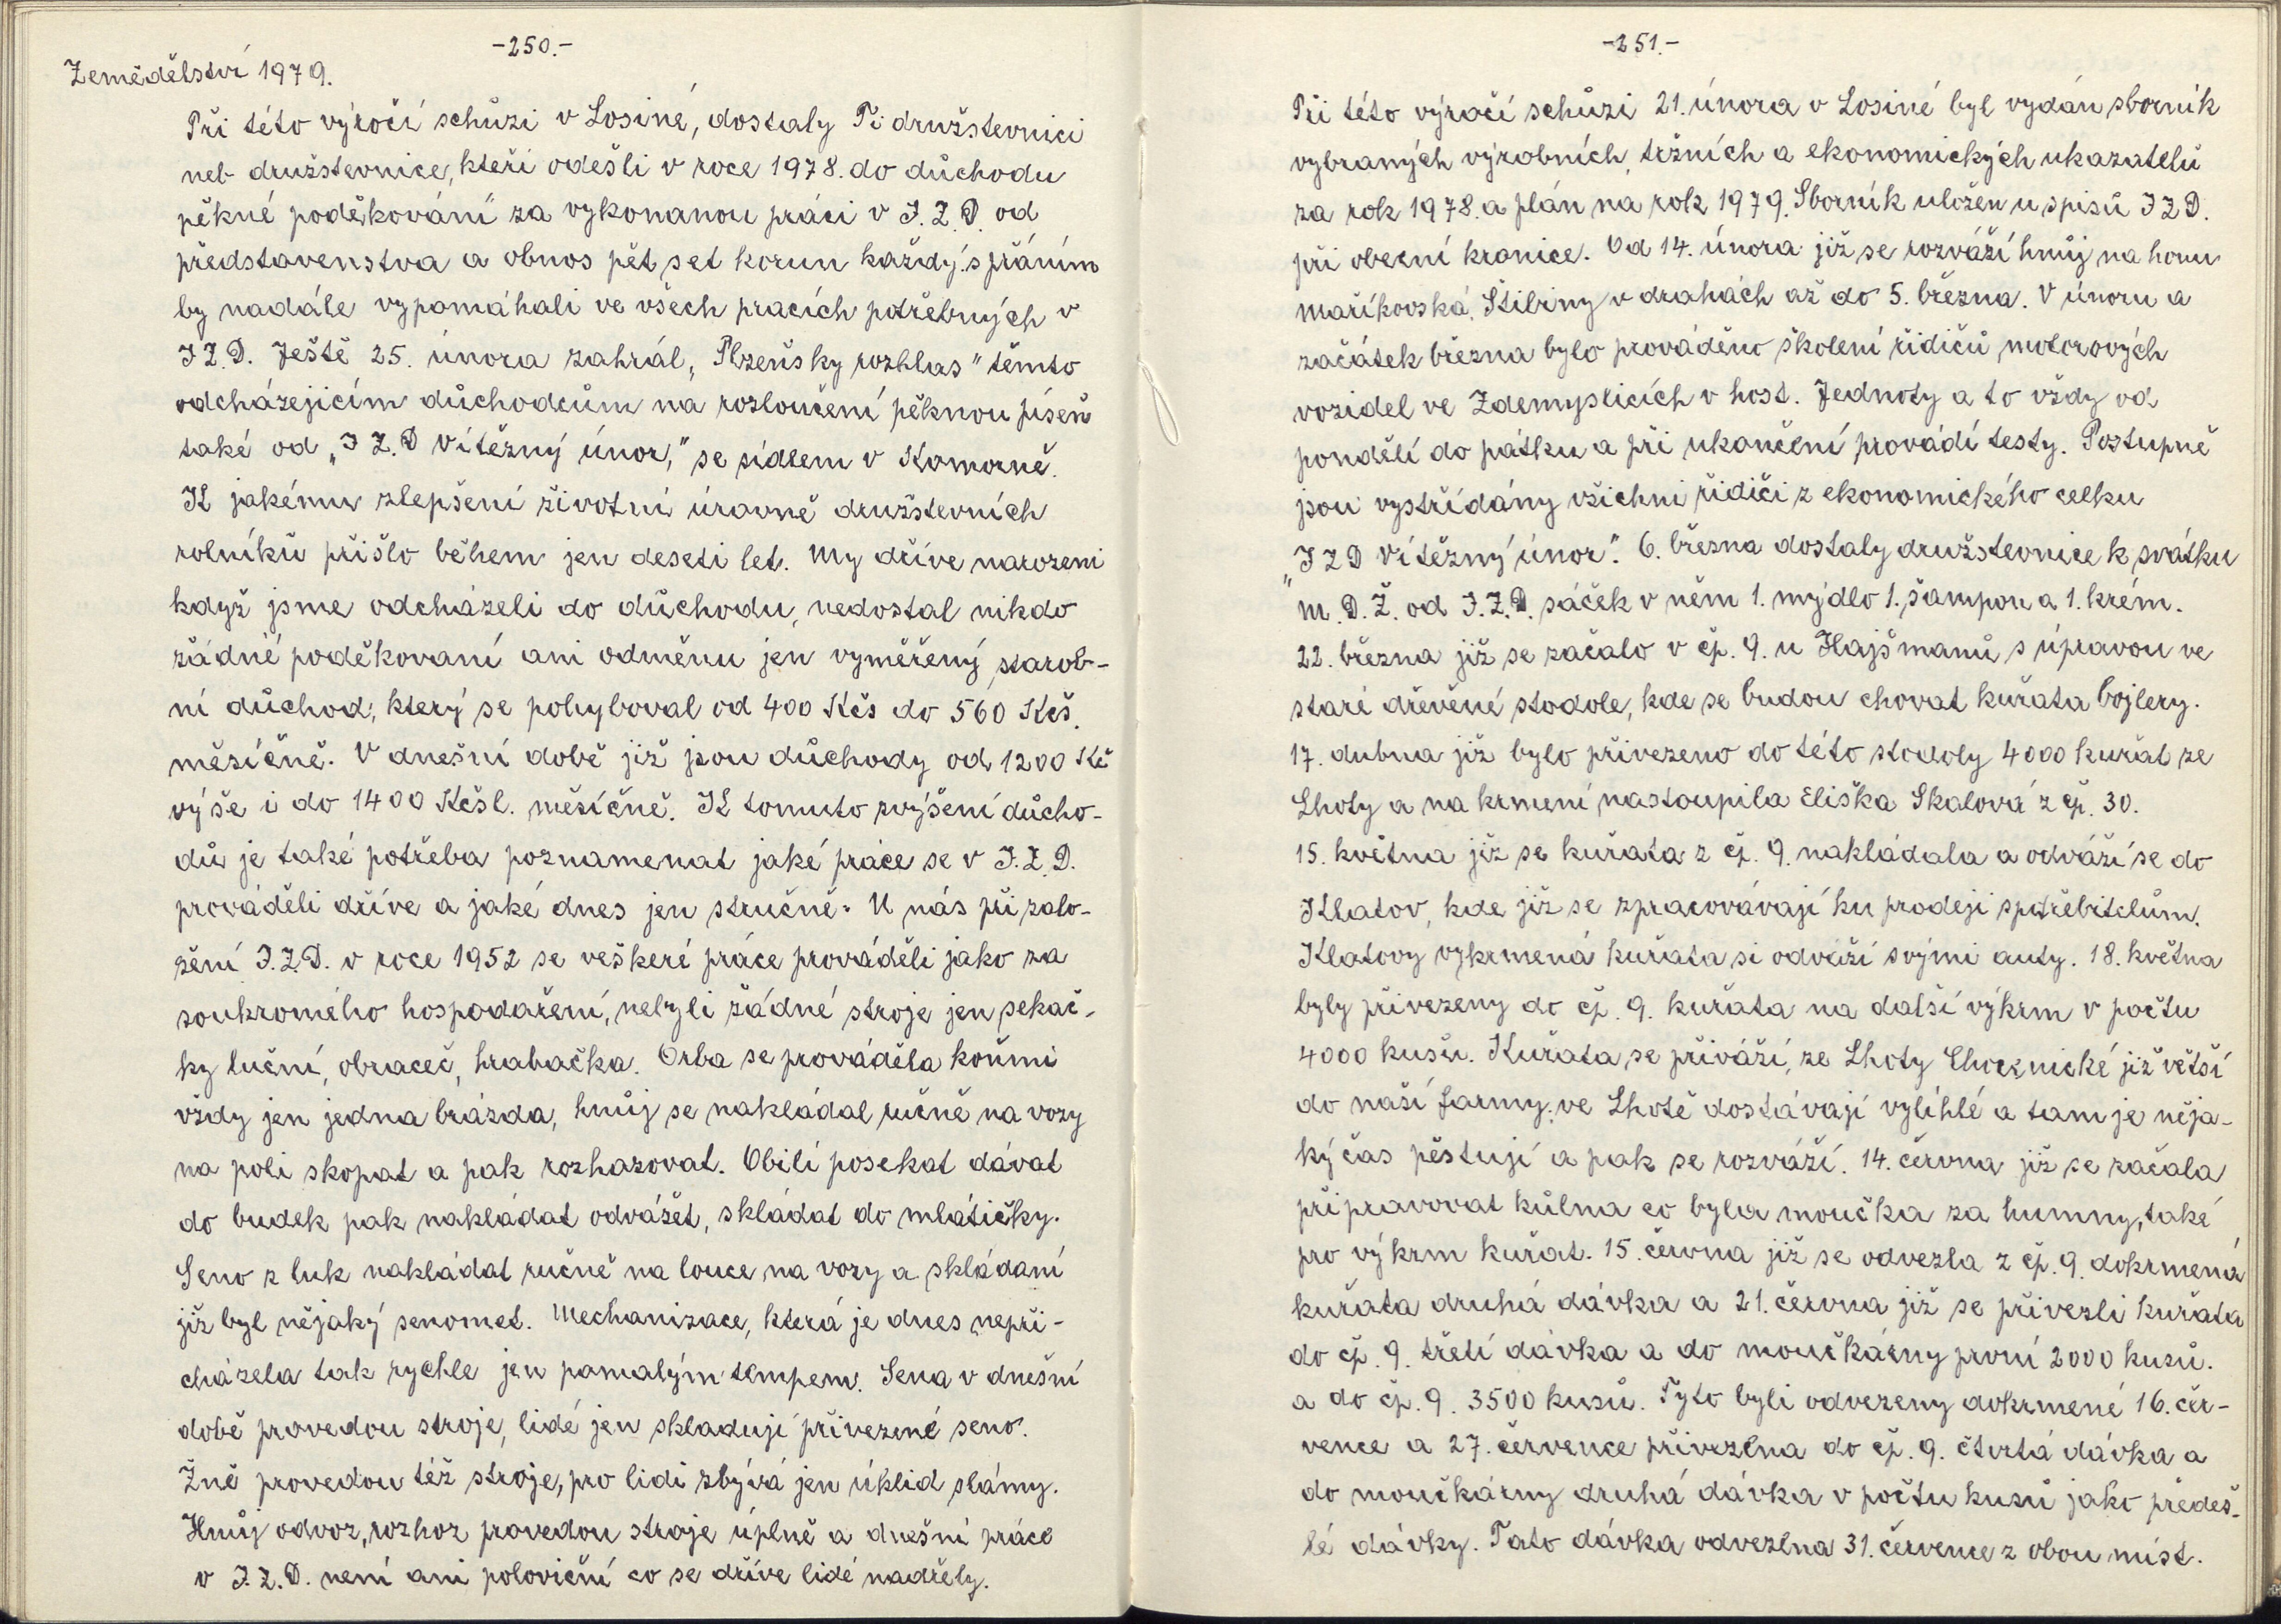 -250.-
Zemědělství 1979.
Při této výročí schůzi v Losiné, dostaly Ti družstevnici
neb družstevnice, kteři odešli v roce 1978. do důchodu
pěkné poděkování za vykonanou práci v J.Z.D. od
představenstva a obnos pět set korun každý s přáním
by nadále vypomáhali ve všech pracích potřebných v
JZ.D. Ještě 25. února zahrál „Plzeňsky rozhlas" těmto
odcházejicím důchodcům na rozloučení pěknou píseň
také od „J Z.D Vítězný únor," se sídlem v Komorně.
K jakému zlepšení životní úrovně družstevních
rolníků přišlo během jen deseti let. My dříve narozeni
když jsme odcházeli do důchodu, nedostal nikdo
žádné poděkovaní ani odměnu jen vyměřený starob-
ní důchod, který se pohyboval od 400 Kčs do 560 Kčs.
měsíčně. V dnešní době již jsou důchody od 1200 Kč
výše i do 1400 Kčsl. měsíčně. K tomuto zvýšení důcho-
dů je také potřeba poznamenat jaké práce se v J.Z.D.
prováděli dříve a jaké dnes jen stručně. U nás při zalo-
žení J.Z.D. v roce 1952 se veškeré práce prováděli jako za
soukromého hospodaření, nebyli žádné stroje jen sekač-
ky luční, obraceč, hrabačka. Orba se prováděla koňmi
vždy jen jedna brázda, hnůj se nakládal ručně na vozy
na poli skopat a pak rozhazovat. Obilí posekat dávat
do budek pak nakládat odvážet, skládat do mlátičky.
Seno z luk nakládat ručně na louce na vozy a skládaní
již byl nějaký senomet. Mechanizace, která je dnes nepři-
cházela tak rychle jen pomalým tempem. Sena v dnešní
době provedou stroje, lidé jen skladují přivezené seno.
Žně provedou též stroje, pro lidi zbývá jen úklid slámy.
Hnůj odvoz, rozhoz provedou stroje úplně a dnešní práce
v J.Z.D. není ani poloviční co se dříve lidé nadřely.
-251.-
Při této výročí schůzi 21. února v Losiné byl vydán sborník
vybraných výrobních, tržních a ekonomických ukazatelů
za rok 1978. a plán na rok 1979. Sborník uložen u spisů JZD.
při obecní kronice. Od 14. února již se rozváží hnůj na honu
Maříkovská, Štibiny v drahách až do 5. března. V únoru a
začátek března bylo prováděno školení řidičů motorových
vozidel ve Zdemyslicích v host. Jednoty a to vždy od
pondělí do pátku a při ukončení provádí testy. Postupně
jsou vystřídány všichni řidiči z ekonomického celku
„JZD Vítězný únor". 6. března dostaly družstevnice k svátku
„M.D.Ž. od J.Z.D. sáček v něm 1. mýdlo 1. šampon a 1. krém.
22. března již se začalo v čp. 9. u Hajšmanů s úpravou ve
staré dřevěné stodole, kde se budou chovat kuřata bojlery.
17. dubna již bylo přivezeno do této stodoly 4000 kuřat ze
Lhoty a na krmení nastoupila Eliška Skalová z čp. 30.
15. května již se kuřata z čp. 9. nakládala a odváží se do
Klatov, kde již se zpracovávají ku prodeji spotřebitelům.
Klatovy vykrmená kuřata si odváží svými auty. 18. května
byly přivezeny do čp. 9. kuřata na další výkrm v počtu
4000 kusů. Kuřata se přiváží, ze Lhoty Chocenické již větší
do naší farmy, ve Lhotě dostávají vylíhlé a tam je něja-
ký čas pěstují a pak se rozváží. 14. června již se začala
připravovat kůlna co byla moučka za humny, také
pro výkrm kuřat. 15. června již se odvezla z čp. 9. dokrmená
kuřata druhá dávka a 21. června již se přivezli kuřata
do čp. 9. třetí dávka a do moučkárny první 2000 kusů.
a do čp. 9. 3500 kusů. Tyto byli odvezeny dokrmené 16. čer-
vence a 27. července přivezena do čp. 9. čtvrtá dávka a
do moučkárny druhá dávka v počtu kusů jako předeš-
lé dávky. Tato dávka odvezena 31. července z obou míst.